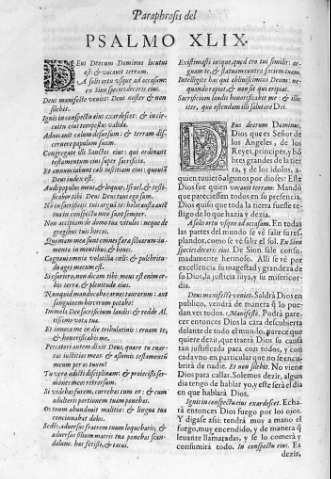 Paraphrosis del
PSALMO XLIX.
DEus Deorum Dominus locutus
est: & vocauit terram.
A solis ortu vsque ad occasum:
ex Sion species decoris eius.
Deus manifeste veniet: Deus noster & non
silebit.
Ignis in conspectu eius exardescet: & in circuitu
eius tempestas valida.
Aduocauit cælum desursum: & terram discernere
populum suum.
Congregate illi Sanctos eius: qui ordinant
testamentum eius super sacrificia.
Et annunciabunt cæli iustitiam eius: quoniã
Deus iudex est.
Audi populus meus, & loquar, Israel, & testificabor
tibi: Deus Deus tuus ego sum.
Non in sacrificijs tuis arguam te: holocausta autẽ
tua in conspectu meo sunt semper.
Non accipiam de domo tua vitulos: neque de
gregibus tuis hircos.
Quoniam meæ sunt omnes feræ siluarum: iumenta
in montibus & boues.
Cognoui omnia volatilia cæli: & pulchritudo
agri mecum est.
Si esuriero, non dicam tibi: meus est enim orbis
terræ, & plenitudo eius.
Nunquid manducabo carnes taurorum: aut
sanguinem hircorum potabo?
Immola Deo sacrificium laudis: & redde Altissimo
vota tua.
Et inuoca me in die tribulationis: eruam te,
& honorificabis me.
Peccatori autem dixit Deus, quare tu enarras
iustitias meas: & assumis testamentũ
meum per os tuum?
Tu vero odisti disciplinam: & proiecisti sermones
meos retrorsum.
Si videbas furem, currebas cum eo: & cum
adulteris portionem tuam ponebas.
Os tuum abundauit malitia: & lingua tua
concinnabat dolos.
Sedẽs, aduersus fratrem tuum loquebaris, &
aduersus filium matris tuæ ponebas scandalum:
hæc fecisti, & tacui.
Existimasti inique, quod ero tui similis: arguam
te, & statuam contra faciem tuam.
Intelligite hæc qui obliuiscimini Deum: nequando
rapiat, & non sit qui eripiat.
Sacrificium laudis honorificabit me: & illic
iter, quo ostendam illi salutare Dei.
DEus deorum Dominus,
Dios que es Señor de
los Angeles, de los
Reyes, principes, y hõbres
grandes de la tierra,
y de los idolos, a
quien tuuierõ algunos por dioses: Este
Dios fue quien vocauit terram. Mandò
que pareciessen todos en su presencia.
Dios quiso que toda la tierra fuesse testigo
de lo que hazia y dezia.
A solis ortu vsque ad occasum. En todas
las partes del mundo se vè salir su resplandor,
como se vè salir el sol. Ex Sion
species decoris eius. De Sion sale consumadamente
hermoso. Alli se vè por
excelencia su magestad y grandeza de
su Dios, la justicia suya, y su misericordia.
Deus manifeste veniet. Saldrà Dios en
publico, vendrà de manera q̃ lo puedan
ver todos. Manifestè. Podra parecer
entonces Dios la cara descubierta
delante de todo el mundo, parezca que
quiere dezir, que traerà Dios su causa
tan justificada para con todos, y con
cada vno en particular que no tengan
Et non silebit. No viene
Dios para callar. Solemos dezir, algun
dia tengo de hablar yo, y este serà el dia
en que hablarà Dios.
Ignis in conspectu eius exardescet. Echarà
entonces Dios fuego por los ojos.
Y digase assi: tendrà muy a mano el
fuego, muy encendido, y de manera q̃
leuante llamaradas, y se lo comerà y
consumirà todo. In conspectu eius. Es
dezir